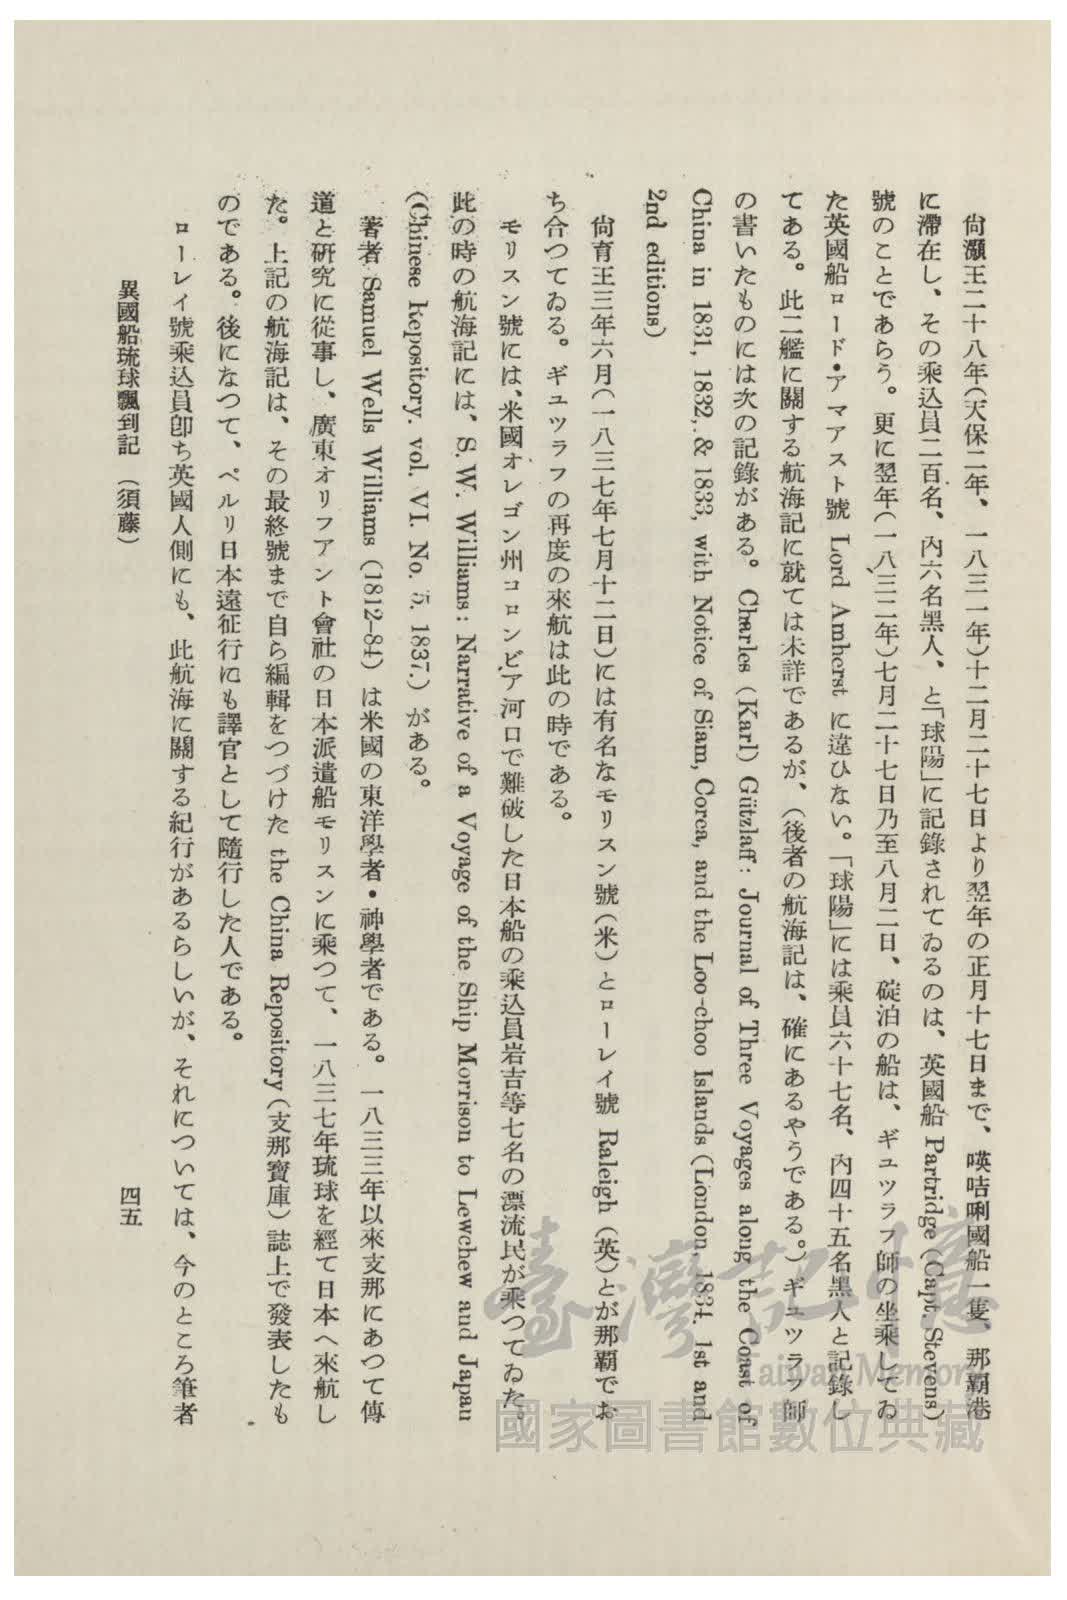 尙灝王二十八年(天保二年、一八三一年)十二月二十七日より翌年の正月十七日まで、暎咭唎國船一隻、那覇港
に滯在し、その乘込員二百名、內六名黑人、と「球陽」に記錄されてゐるのは、英國船 Partridge (Capt. Stevens)
號のことであらう。更に翌年(一八三二年)七月二十七日乃至八月二日、碇泊の船は、ギュツラフ師の坐乘してゐ
た英國船ロード・アマアスト號 Lord Amherst に違ひない。「球陽」には乘員六十七名、內四十五名黑人と記錄し
てある。此二艦に關する航海記に就ては未詳であるが、(後者の航海記は、確にあるやうである。)ギュツラフ師
の書いたものには次の記錄がある。 Charles (Karl) Gützlaff : Journal of Three Voyages along the Coast of
China in 1831, 1832, & 1833, with Notice of Siam, Corea, and the Loo-choo Islands (London, 1834. 1st and
2nd editions)
尙育王三年六月(一八三七年七月十二日)には有名なモリスン號(米)とローレイ號 Raleigh (英)とが那覇でお
ち合つてゐる。ギュツラフの再度の來航は此の時である。
モリスン號には、米國オレゴン州コロンビア河口で難破した日本船の乘込員岩吉等七名の漂流民が乘つてゐた。
此の時の航海記には、S. W. Williams : Narrative of a Voyage of the Ship Morrison to Lewchew and Japan
(Chinese Repository. vol. VI. No. 5. 1837.) がある。
著者 Samuel Wells Williams (1812–84) は米國の東洋學者・神學者である。一八三三年以來支那にあつて傳
道と研究に從事し、廣東オリフアント會社の日本派遣船モリスンに乘つて、一八三七年琉球を經て日本へ來航し
た。上記の航海記は、その最終號まで自ら編輯をつづけた the China Repository (支那寶庫) 誌上で發表したも
のである。後になつて、ペルリ日本遠征行にも譯官として隨行した人である。
ローレイ號乘込員卽ち英國人側にも、此航海に關する紀行があるらしいが、それについては、今のところ筆者
異國船琉球飄到記 (須藤)
四五
臺灣記憶
Taiwan Memory
國家圖書館數位典藏